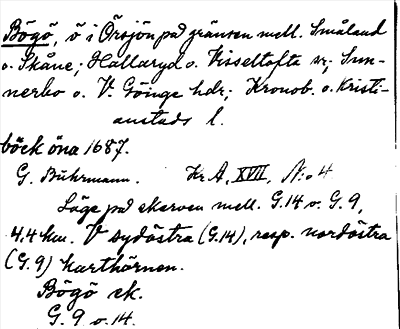 Bögö, ö i Örsjön på gränsen mell. Småland
o. Skåne; Hallaryd o. Visseltofta sr; Sun-
nerbo o. V. Göinge hdr; Kronob. o. Kristi-
anstads l.
böck öna 1687.
G. Buhrmann. Kr. A, XVII, N:o 4
Läge på skarven mell. G.14 o. G.9,
4,4 km. V sydöstra (G.14), resp. nordöstra
(G.9) karthörnen.
Bögö ek.
G. 9 o. 14.